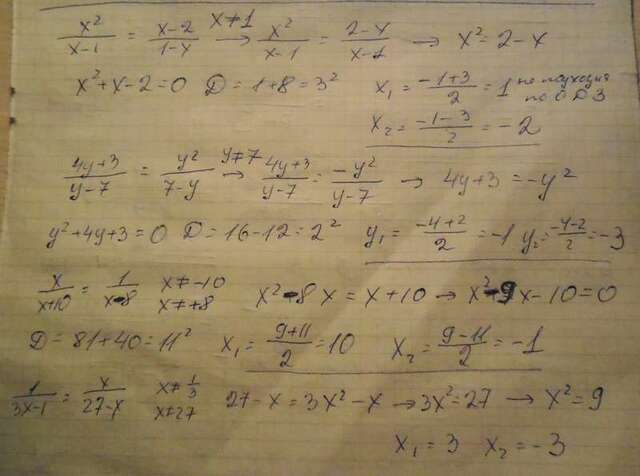 x²/(x-1) = (x-2)/(1-x) x≠1 → x²/(x-1) = (2-x)/(x-1) → x² = 2-x
x²+x-2=0 D=1+8=3² x₁ = (-1+3)/2 = 1 не подходит по ОДЗ
x₂ = (-1-3)/2 = -2
(4y+3)/(y-7) = y²/(7-y) y≠7 → (4y+3)/(y-7) = -y²/(y-7) → 4y+3 = -y²
y²+4y+3=0 D=16-12=2² y₁ = (-4+2)/2 = -1 y₂ = (-4-2)/2 = -3
x/(x+10) = 1/(x-8) x≠-10 x≠+8 x²-8x = x+10 → x²-9x-10=0
D=81+40=11² x₁ = (9+11)/2 = 10 x₂ = (9-11)/2 = -1
1/(3x-1) = x/(27-x) x≠1/3 x≠27 27-x = 3x²-x → 3x²=27 → x²=9
x₁ = 3 x₂ = -3